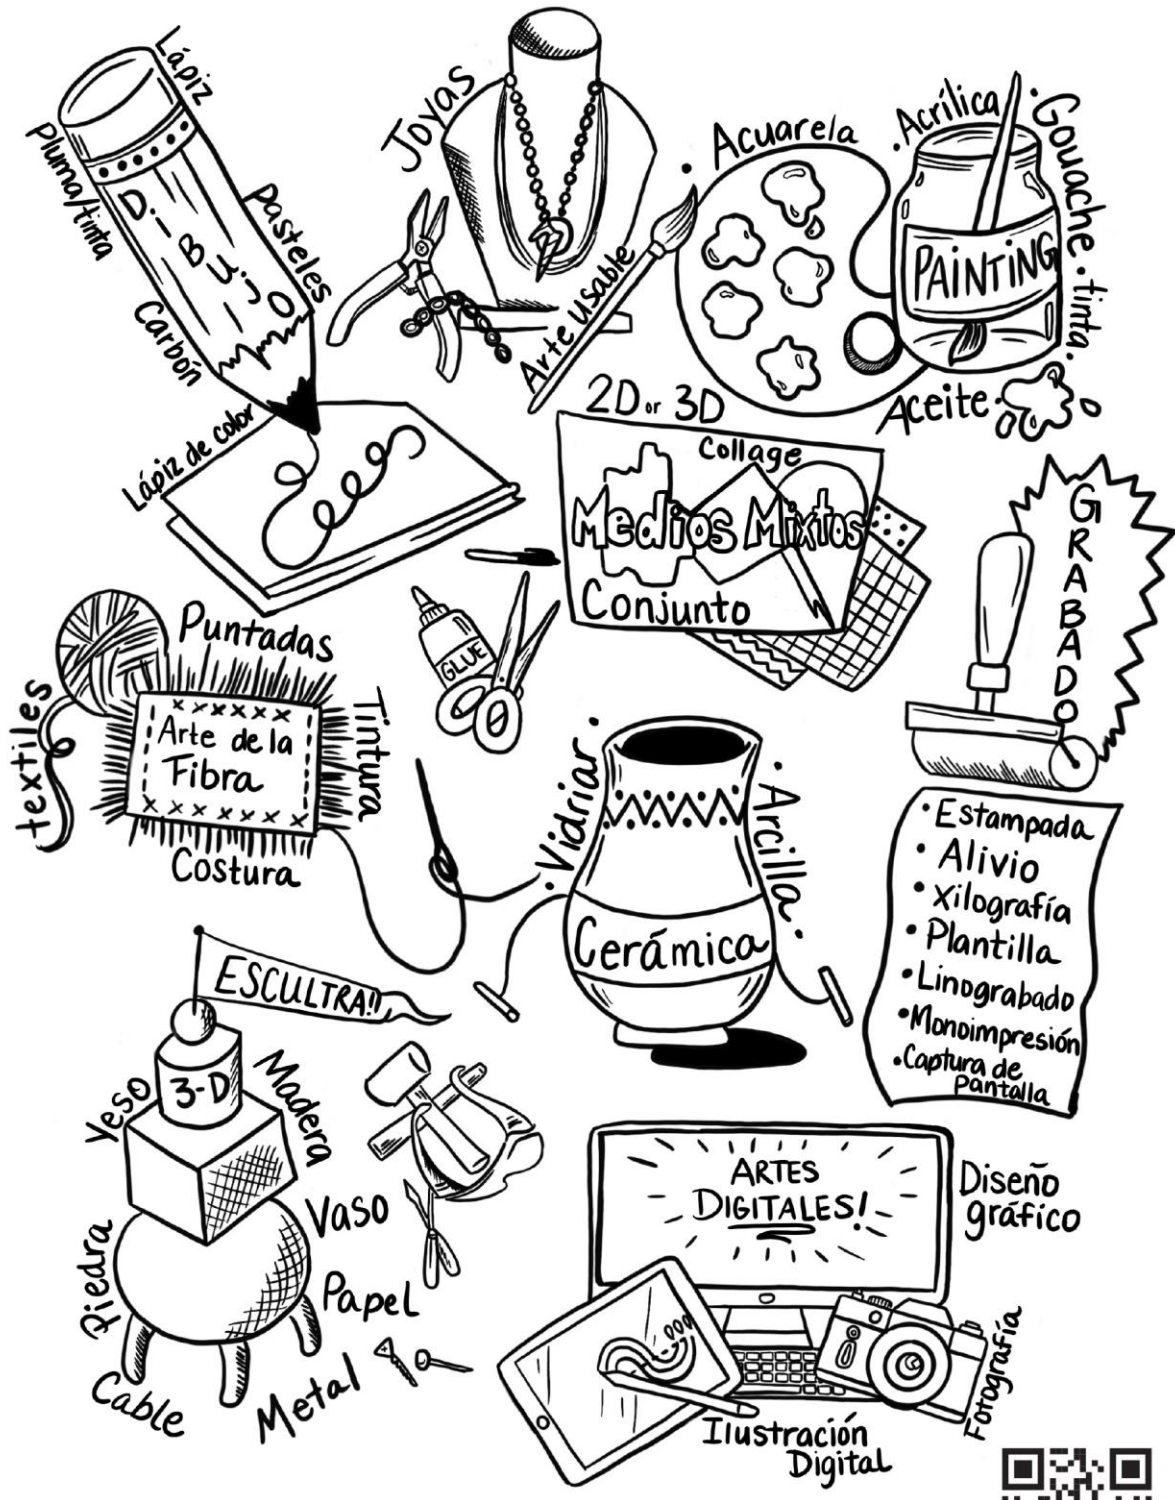 Lápiz
Pluma/tinta
Dibujo
pasteles
Carbón
Lápiz de color
Joyas
Arte usable
Acuarela
Acrílica
Gouache
tinta
PAINTING
Aceite
2D or 3D
Collage
Medios Mixtos
Conjunto
GLUE
GRABADO
Estampada
Alivio
Xilografía
Plantilla
Linograbado
Monoimpresión
Captura de
Pantalla
Puntadas
textiles
Arte de la
Fibra
Tintura
Costura
Vidriar
Arcilla
Cerámica
ESCULTRA!!
3-D
Yeso
Madera
Vaso
Piedra
Papel
Cable
Metal
ARTES
DIGITALES!
Diseño
gráfico
Fotografía
Ilustración
Digital